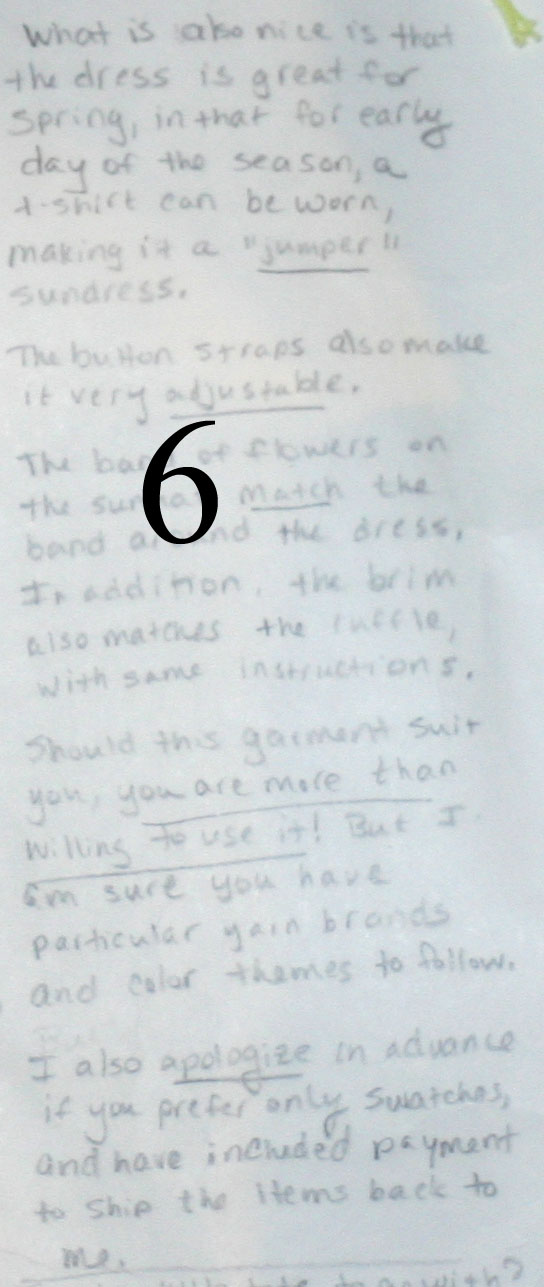 What is also nice is that
the dress is great for
spring, in that for early
day of the season, a
t-shirt can be worn,
making it a "jumper"
sundress.
The button straps also make
it very adjustable.
6
The of flowers on
the match the
band the dress.
In addition, the brim
also matches the ruffle,
with same instructions.
Should this garment suit
you, you are more than
willing to use it! But I
am sure you have
particular yarn brands
and color themes to follow.
I also apologize in advance
if you prefer only swatches,
and have included payment
to ship the items back to
me.